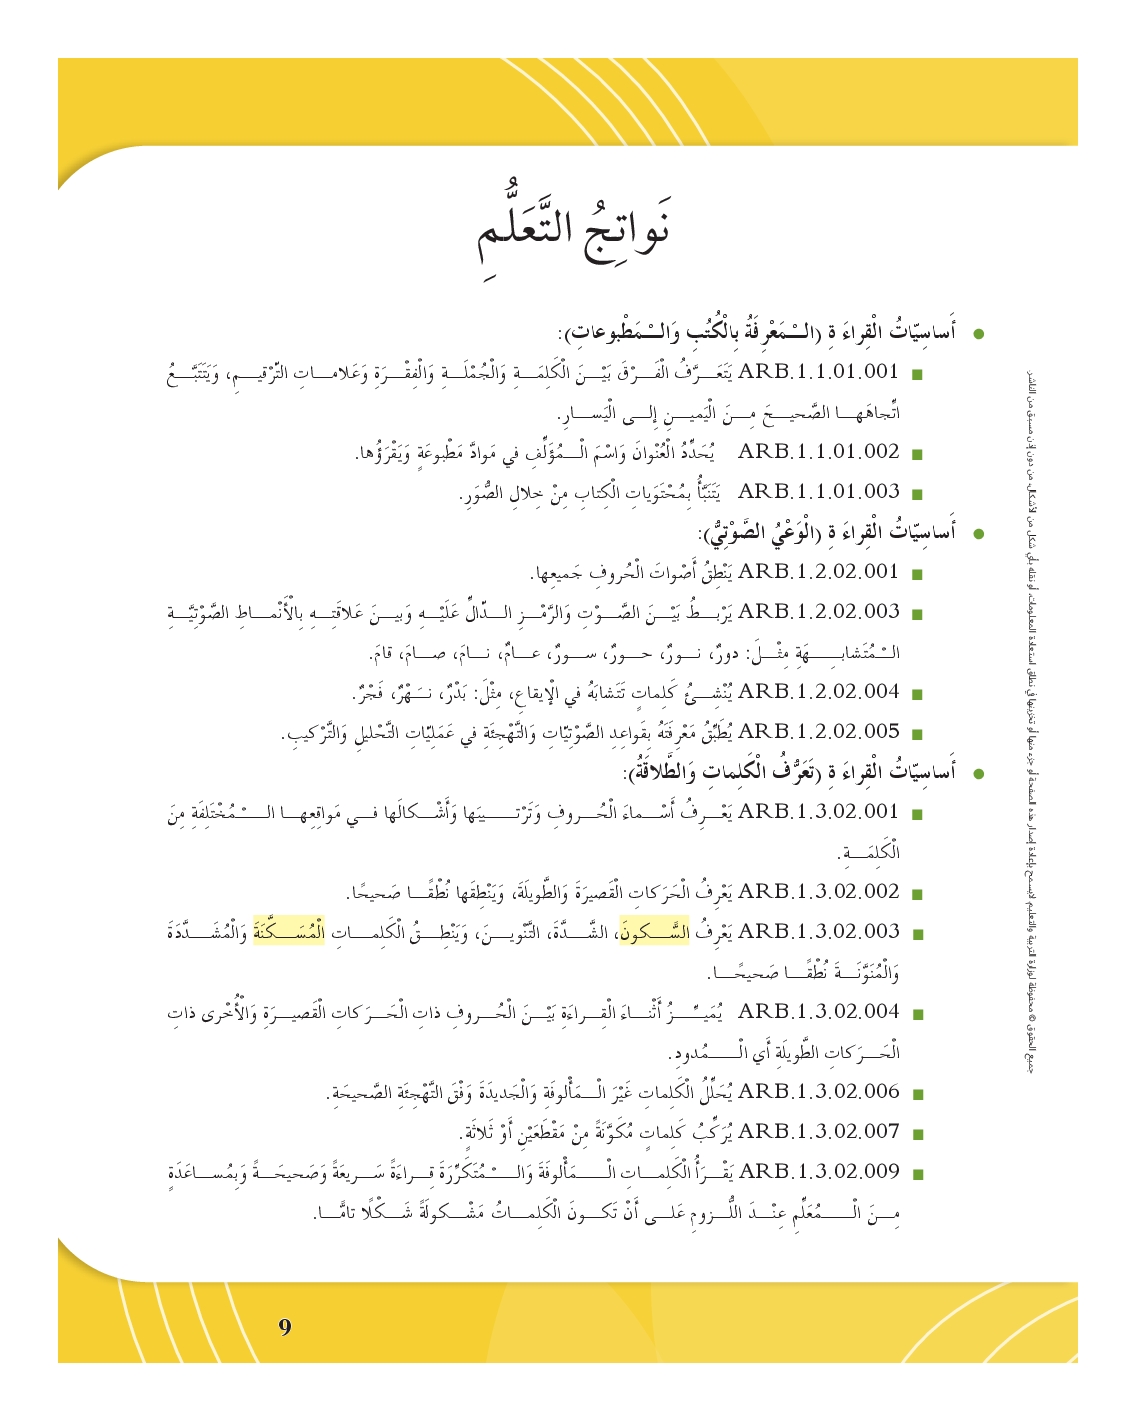 نَواتِجُ التَّعَلُّمِ
أَساسِيّاتُ الْقِراءَ ةِ (الْمَعْرِفَةُ بِالْكُتُبِ وَالْمَطْبوعاتِ):
ARB.1.1.01.001 يَتَعَرَّفُ الْفَرْقَ بَيْنَ الْكَلِمَةِ وَالْجُمْلَةِ وَالْفِقْرَةِ وَعَلاماتِ التَّرْقيمِ، وَيَتَتَبَّعُ
اتِّجاهَها الصَّحيحَ مِنَ الْيَمينِ إِلى الْيَسارِ.
ARB.1.1.01.002 يُحَدِّدُ الْعُنْوانَ وَاسْمَ الْمُؤَلِّفِ في مَوادَّ مَطْبوعَةٍ وَيَقْرَؤُها.
ARB.1.1.01.003 يَتَنَبَّأُ بِمُحْتَوَياتِ الْكِتابِ مِنْ خِلالِ الصُّوَرِ.
أَساسِيّاتُ الْقِراءَ ةِ (الْوَعْيُ الصَّوْتِيُّ):
ARB.1.2.02.001 يَنْطِقُ أَصْواتَ الْحُروفِ جَميعِها.
ARB.1.2.02.003 يَرْبِطُ بَيْنَ الصَّوْتِ وَالرَّمْزِ الدّالِّ عَلَيْهِ وَبينَ عَلاقَتِهِ بِالْأَنْماطِ الصَّوْتِيَّةِ
الْمُتَشابِهَةِ مِثْلَ: دورٌ، نورٌ، حورٌ، سورٌ، عامٌ، نامَ، صامَ، قامَ.
ARB.1.2.02.004 يُنْشِئُ كَلِماتٍ تَتَشابَهُ في الْإيقاعِ، مِثْلَ: بَدْرٌ، نَهْرٌ، فَجْرٌ.
ARB.1.2.02.005 يُطَبِّقُ مَعْرِفَتَهُ بِقَواعِدِ الصَّوْتِيّاتِ وَالتَّهْجِئَةِ في عَمَلِيّاتِ التَّحْليلِ وَالتَّرْكيبِ.
أَساسِيّاتُ الْقِراءَ ةِ (تَعَرُّفُ الْكَلِماتِ وَالطَّلاقَةُ):
ARB.1.3.02.001 يَعْرِفُ أَسْماءَ الْحُروفِ وَتَرْتيبَها وَأَشْكالَها في مَواقِعِها الْمُخْتَلِفَةِ مِنَ
الْكَلِمَةِ.
ARB.1.3.02.002 يَعْرِفُ الْحَرَكاتِ الْقَصيرَةَ وَالطَّويلَةَ، وَيَنْطِقَها نُطْقًا صَحيحًا.
ARB.1.3.02.003 يَعْرِفُ السَّكونَ، الشَّدَّةَ، التَّنْوينَ، وَيَنْطِقُ الْكَلِماتِ الْمُسَكَّنَةَ وَالْمُشَدَّدَةَ
وَالْمُنَوَّنَةَ نُطْقًا صَحيحًا.
ARB.1.3.02.004 يُمَيِّزُ أَثْناءَ الْقِراءَةِ بَيْنَ الْحُروفِ ذاتِ الْحَرَكاتِ الْقَصيرَةِ وَالْأُخْرى ذاتِ
الْحَرَكاتِ الطَّويلَةِ أَي الْمُدودِ.
ARB.1.3.02.006 يُحَلِّلُ الْكَلِماتِ غَيْرَ الْمَأْلوفَةِ وَالْجَديدَةَ وَفْقَ التَّهْجِئَةِ الصَّحيحَةِ.
ARB.1.3.02.007 يُرَكِّبُ كَلِماتٍ مُكَوَّنَةً مِنْ مَقْطَعَيْنِ أَوْ ثَلاثَةٍ.
ARB.1.3.02.009 يَقْرَأُ الْكَلِماتِ الْمَأْلوفَةَ وَالْمُتَكَرِّرَةَ قِراءَةً سَريعَةً وَصَحيحَةً وَبِمُساعَدَةٍ
مِنَ الْمُعَلِّمِ عِنْدَ اللُّزومِ عَلى أَنْ تَكونَ الْكَلِماتُ مَشْكولَةً شَكْلًا تامًّا.
جميع الحقوق © محفوظة لوزارة التربية والتعليم لايسمح بإعادة إصدار هذه الصفحة أو جزء منها أو تخزينها في نطاق استعادة المعلومات، أو نقله بأي شكل من الأشكال، من دون إذن مسبق من الناشر
9